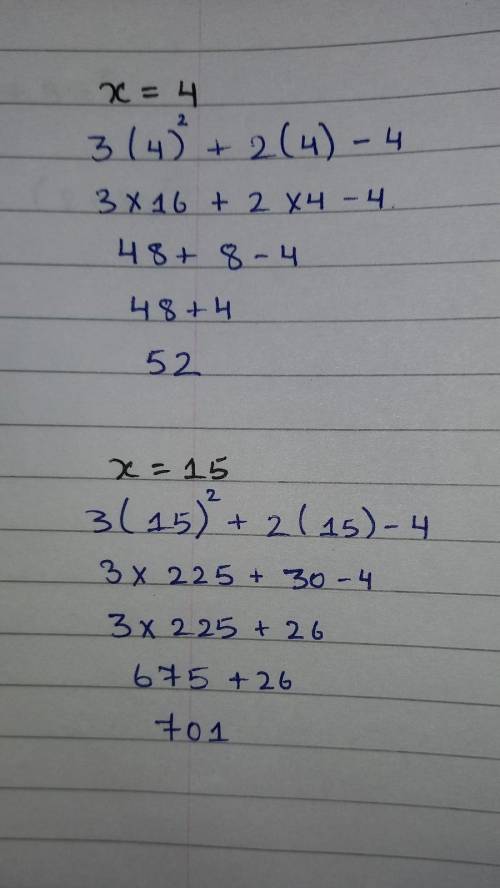 x = 4
3(4)² + 2(4) - 4
3 × 16 + 2 × 4 - 4
48 + 8 - 4
48 + 4
52
x = 15
3(15)² + 2(15) - 4
3 × 225 + 30 - 4
3 × 225 + 26
675 + 26
701